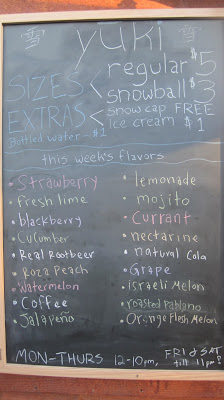 yuki
SIZES < regular $5
snowball $3
EXTRAS < snow cap FREE
Ice cream $1
Bottled water - $1
this week's flavors
• Strawberry
• fresh lime
• blackberry
• Cucumber
• Real Rootbeer
• Roza Peach
• Watermelon
• Coffee
• Jalapeño
• lemonade
• mojito
• Currant
• nectarine
• natural Cola
• Grape
• israeli Melon
• roasted Pablano
• Orange Flesh Melon
MON-THURS 12-10pm, FRI & SAT
till 11pm?